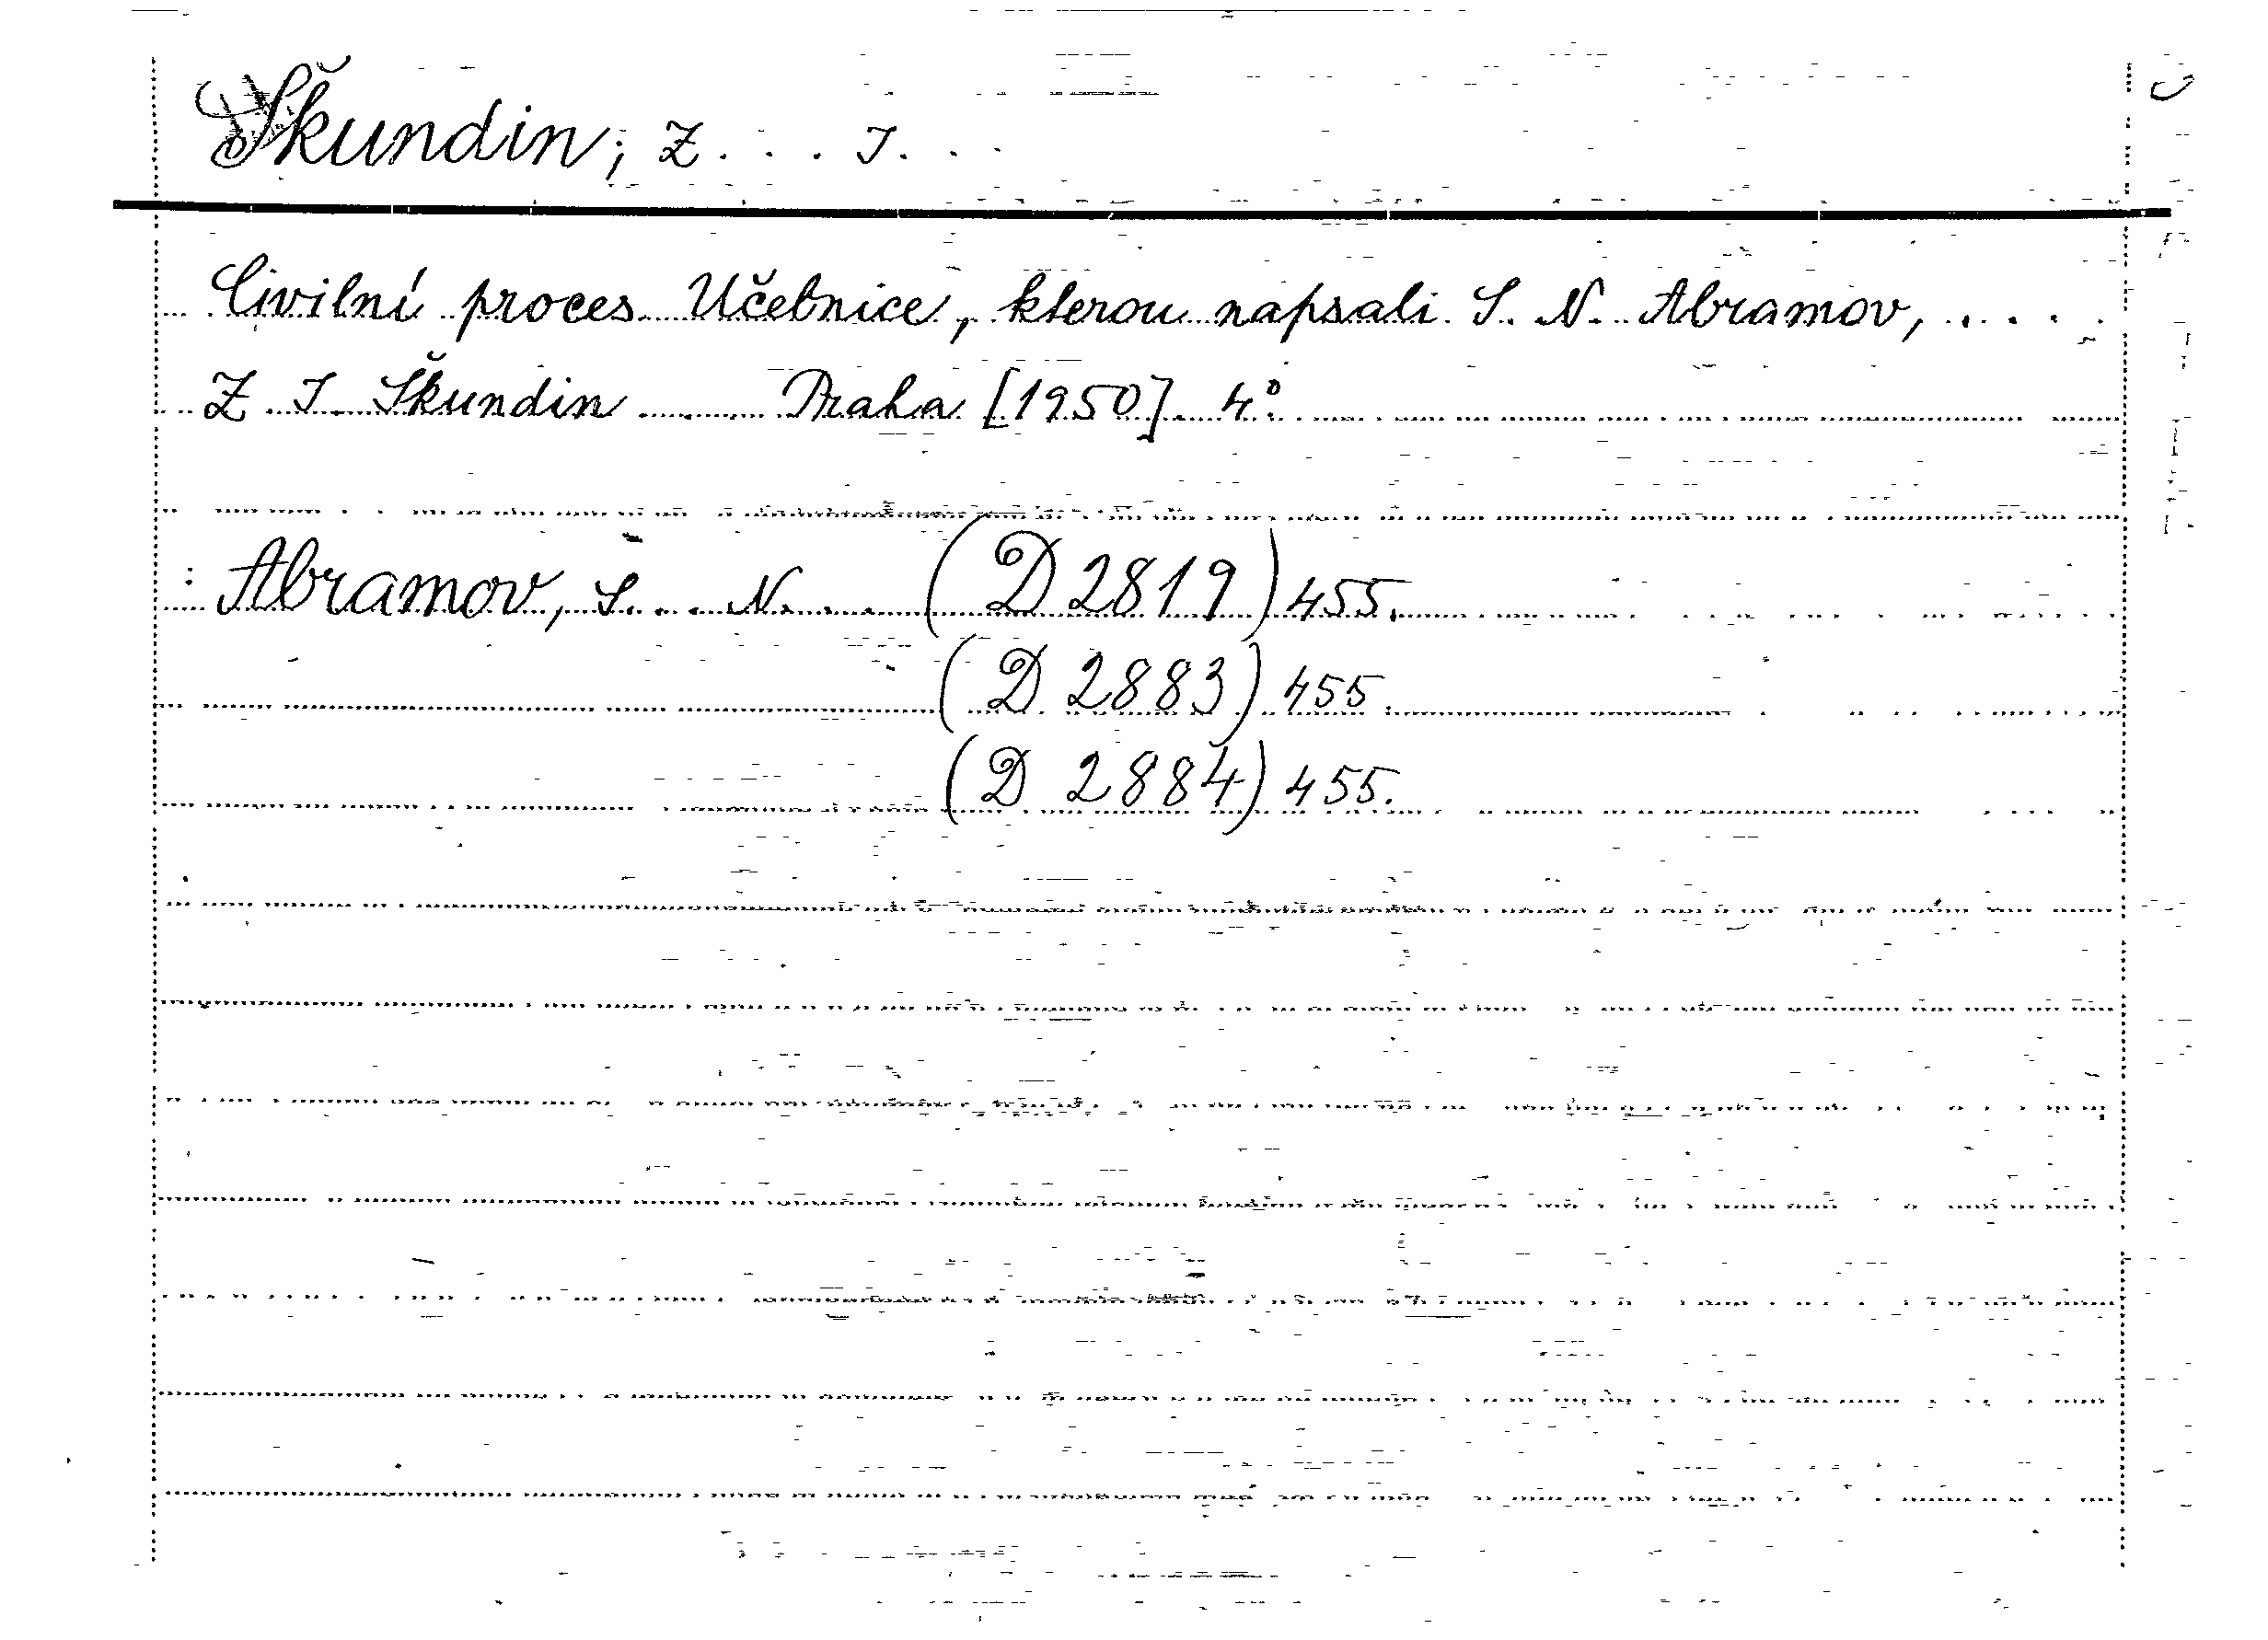 Škundin, Z... I...
Civilní proces. Učebnice, kterou napsali S. N. Abramov, ....
Z. I. Škundin ...... Praha [1950]. 4°.
Abramov, S... N... (D 2819) 455.
(D 2883) 455.
(D 2884) 455.